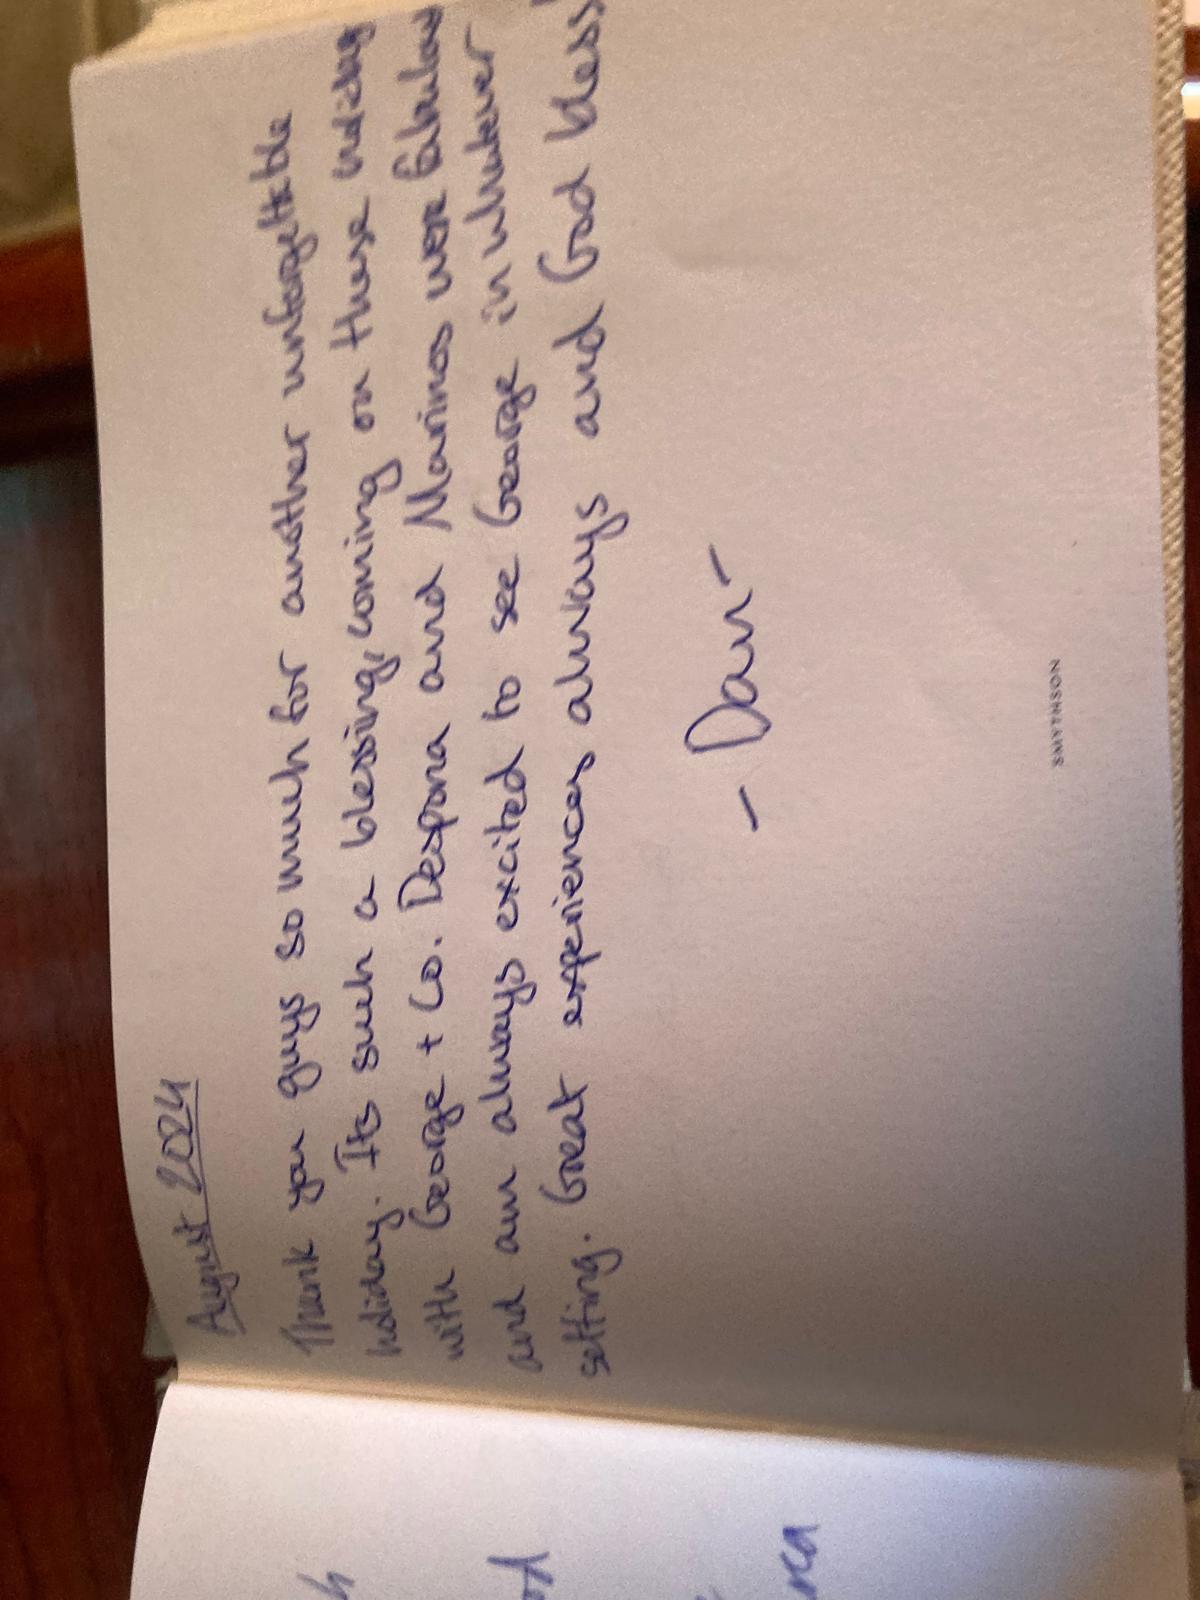 August 2024
Thank you guys so much for another unforgettable
holiday. Its such a blessing, coming on these holiday
with George + Co. Despina and Marinos were fabulous
and am always excited to see George in whatever
setting. Great experiences always and God bless
- Dan -
SMYTHSON